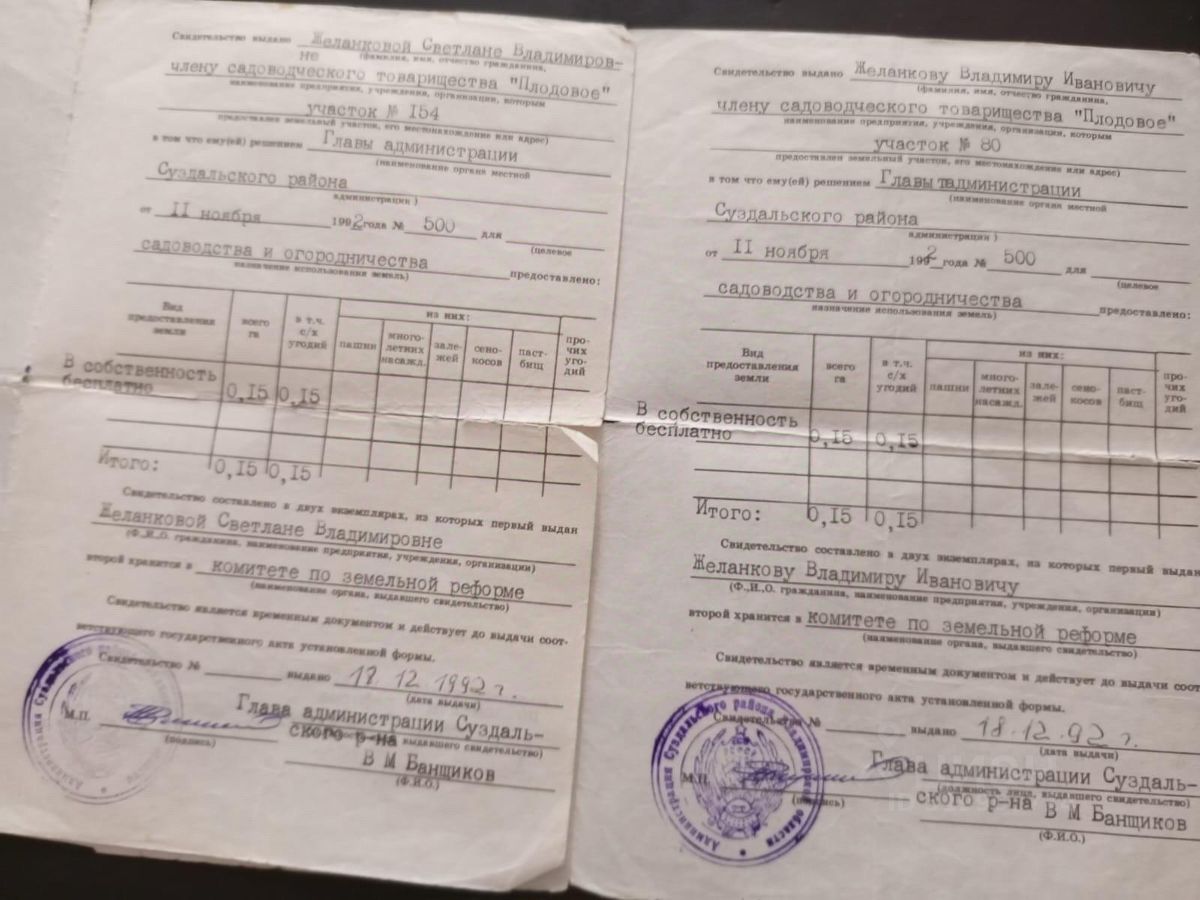 Свидетельство выдано Желанковой Светлане Владимиров-
не (фамилия, имя, отчество гражданина,
члену садоводческого товарищества "Плодовое"
наименование предприятия, учреждения, организации, которым
участок № I54
предоставлен земельный участок, его местонахождение или адрес)
в том что ему(ей) решением Главы администрации
(наименование органа местной
Суздальского района
администрации)
от II ноября 1992 года № 500 для
(целевое
садоводства и огородничества предоставлено:
назначение использования земель)
Вид предоставления земли
всего га
в т.ч. с/х угодий
из них:
пашни
много-летних насажд.
зале-жей
сено-косов
паст-бищ
про-чих уго-дий
В собственность
бесплатно 0,I5 0,I5
Итого: 0,I5 0,I5
Свидетельство составлено в двух экземплярах, из которых первый выдан
Желанковой Светлане Владимировне
(Ф.,И.,О. гражданина, наименование предприятия, учреждения, организации)
второй хранится в комитете по земельной реформе
(наименование органа, выдавшего свидетельство)
Свидетельство является временным документом и действует до выдачи соот-
ветствующего государственного акта установленной формы.
Свидетельство № выдано 18.12.1992 г.
(дата выдачи)
М.П.
(подпись)
Глава администрации Суздаль-
ского р-на выдавшего свидетельство)
В М Банщиков
(Ф.И.О.)
Администрация Суздальского района
Свидетельство выдано Желанкову Владимиру Ивановичу
(фамилия, имя, отчество гражданина,
члену садоводческого товарищества "Плодовое"
наименование предприятия, учреждения, организации, которым
участок № 80
предоставлен земельный участок, его местонахождение или адрес)
в том что ему(ей) решением Главы администрации
(наименование органа местной
Суздальского района
администрации)
от II ноября 1992 года № 500 для
(целевое
садоводства и огородничества предоставлено:
назначение использования земель)
Вид предоставления земли
всего га
в т.ч. с/х угодий
из них:
пашни
много-летних насажд.
зале-жей
сено-косов
паст-бищ
про-чих уго-дий
В собственность
бесплатно 0,I5 0,I5
Итого: 0,I5 0,I5
Свидетельство составлено в двух экземплярах, из которых первый выдан
Желанкову Владимиру Ивановичу
(Ф.,И.,О. гражданина, наименование предприятия, учреждения, организации)
второй хранится в комитете по земельной реформе
(наименование органа, выдавшего свидетельство)
Свидетельство является временным документом и действует до выдачи соот-
ветствующего государственного акта установленной формы.
Свидетельство № выдано 18.12.92 г.
(дата выдачи)
М.П.
(подпись)
Глава администрации Суздаль-
(должность лица, выдавшего свидетельство)
ского р-на В М Банщиков
(Ф.И.О.)
Администрация Суздальского района Владимирской области